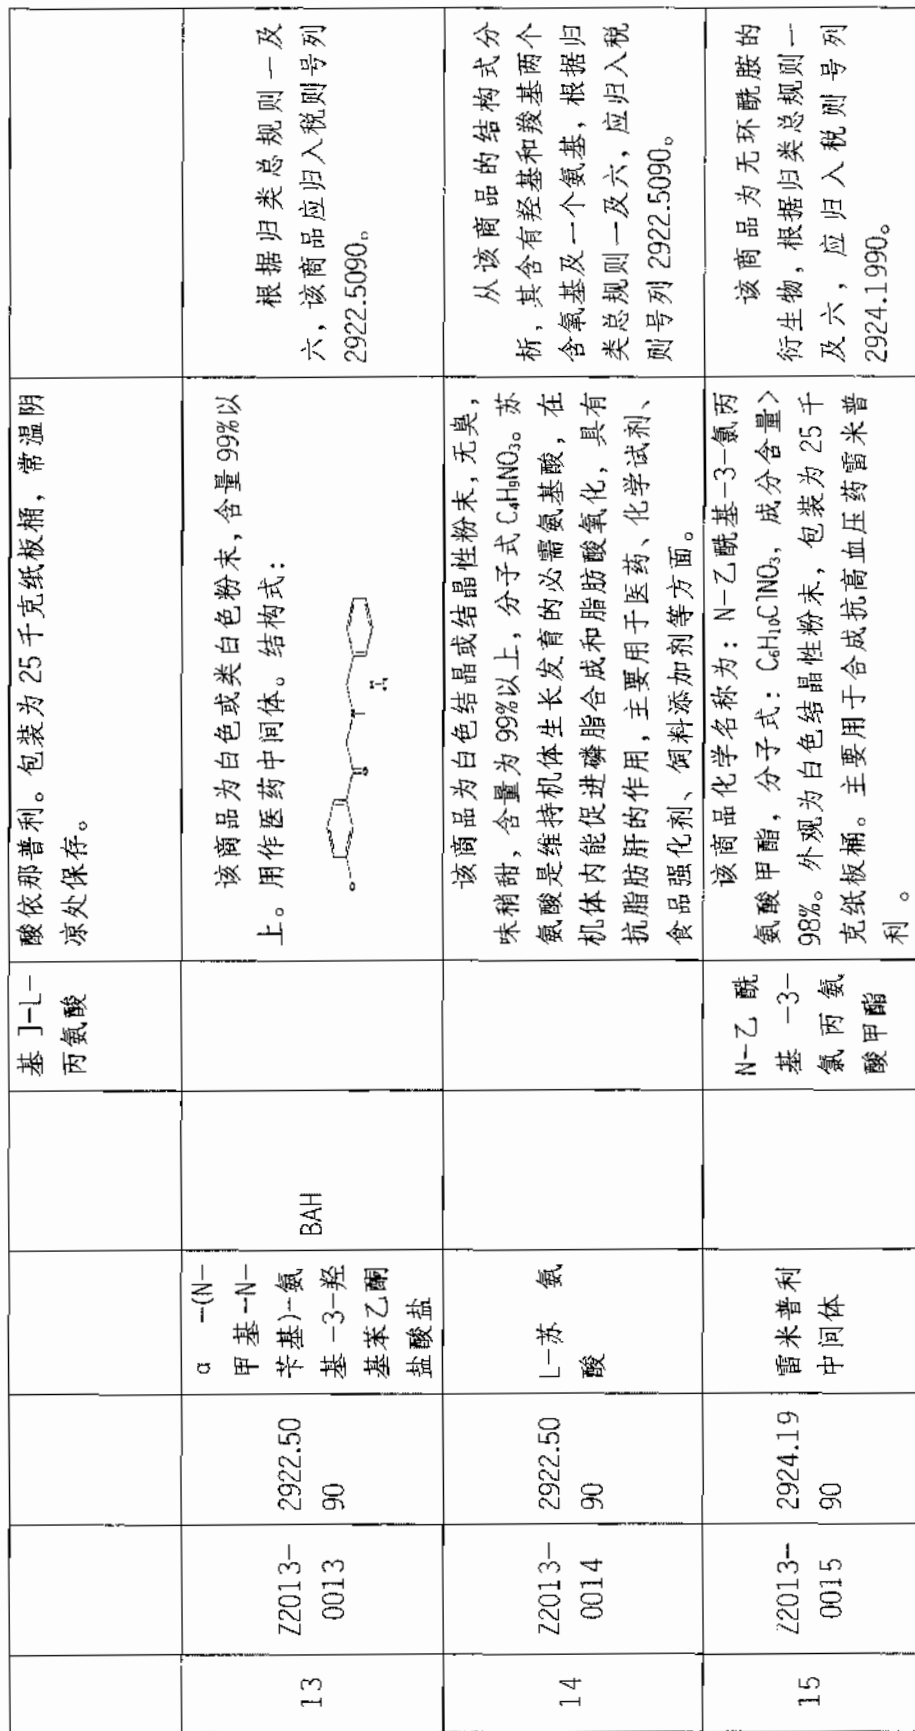 基 ]-L-
丙氨酸
酸依那普利。包装为 25 千克纸板桶，常温阴
凉处保存。
13
Z2013-
0013
2922.50
90
α -(N-
甲基-N-
苄基)-氨
基-3-羟
基苯乙酮
盐酸盐
BAH
该商品为白色或类白色粉末，含量 99%以
上。用作医药中间体。结构式：
根据归类总规则一及
六，该商品应归入税则号列
2922.5090。
14
Z2013-
0014
2922.50
90
L-苏 氨
酸
该商品为白色结晶或结晶性粉末，无臭，
味稍甜，含量为 99%以上，分子式 C₄H₉NO₃。苏
氨酸是维持机体生长发育的必需氨基酸，在
机体内能促进磷脂合成和脂肪酸氧化，具有
抗脂肪肝的作用，主要用于医药、化学试剂、
食品强化剂、饲料添加剂等方面。
从该商品的结构式分
析，其含有羟基和羧基两个
含氧基及一个氨基，根据归
类总规则一及六，应归入税
则号列 2922.5090。
15
Z2013-
0015
2924.19
90
雷米普利
中间体
N-乙 酰
基 -3-
氯丙氨
酸甲酯
该商品化学名称为：N-乙酰基-3-氯丙
氨酸甲酯，分子式：C₆H₁₀ClNO₃，成分含量>
98%。外观为白色结晶性粉末，包装为 25 千
克纸板桶。主要用于合成抗高血压药雷米普
利。
该商品为无环酰胺的
衍生物，根据归类总规则一
及六，应归入税则号列
2924.1990。